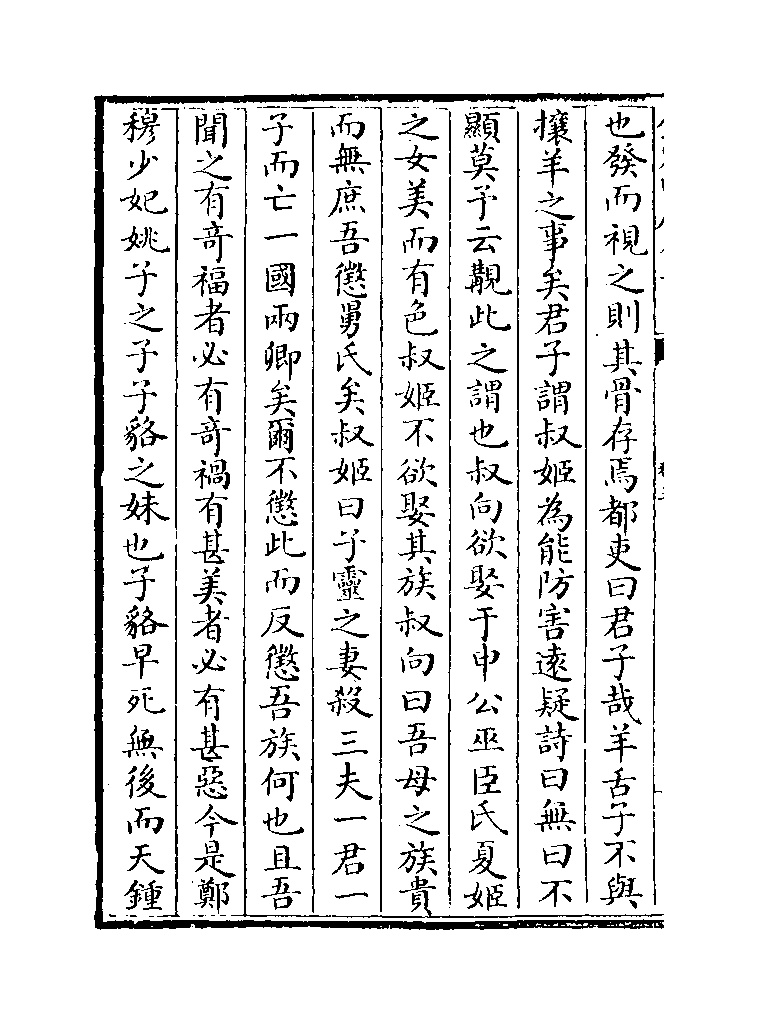 也發而視之則其骨存焉都吏曰君子哉羊舌子不與
攘羊之事矣君子謂叔姬為能防害遠疑詩曰無曰不
顯莫予云覯此之謂也叔向欲娶于申公巫臣氏夏姬
之女美而有色叔姬不欲娶其族叔向曰吾母之族貴
而無庶吾懲舅氏矣叔姬曰子靈之妻殺三夫一君一
子而亡一國兩卿矣爾不懲此而反懲吾族何也且吾
聞之有竒福者必有竒禍有甚美者必有甚惡今是鄭
穆少妃姚子之子子貉之妹也子貉早死無後而天鍾